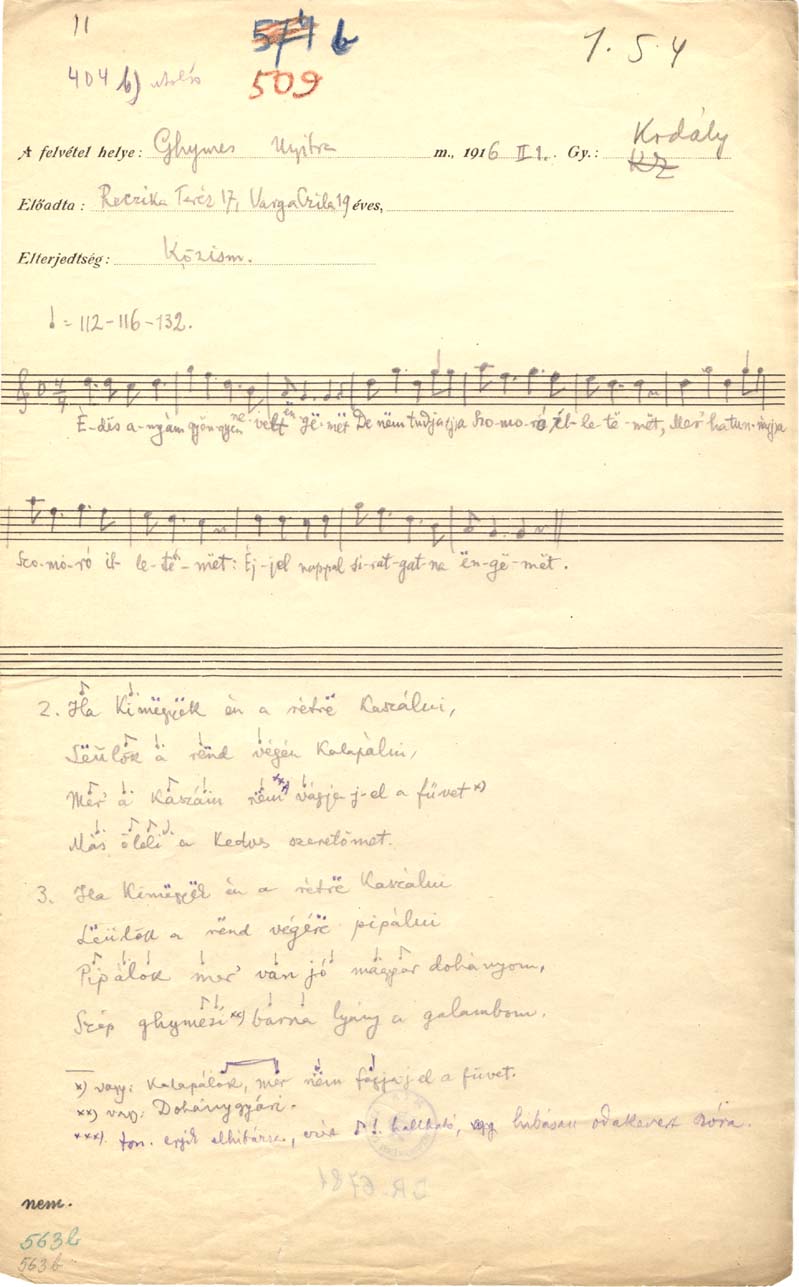 11
571 b
1. 5. 4
404 b) utolsó
509
A felvétel helye: Ghymes Nyitra m., 1916 II 1. Gy.: Kodály KZ
Előadta: Reczika Teréz 17, Varga Czila 19 éves,
Elterjedtség: Közism.
= 112-116-132.
È-dës a-nyám gyön-gyen ne-velt ën-gë-mët De nëm tudja Szo-mo-ró él-le-të-mët, Mer' ha tun-
Szo-mo-ró il-le-të-mët: Éj-jel nappal si-rat-gat-na ën-gë-mët.
2. Ha kimëgyëk èn a rétrë kaszálni,
Lëülök a rënd végén kalapálni,
Mer' a kaszám nëm xxx) vágja j-el a füvet x)
Más öleli a kedves szeretőmet.
3. Ha kimëgyëk èn a rétrë kaszálni
Lëülök a rënd végére pipálni
Pipálok mer' van jó magyar dohányom,
Szép ghymesi xx) barna lyány a galambom.
x) vagy: kalapálok, mer nëm fogja j-el a füvet.
xx) vagy: Dohánygyári.
xxx) fon. hallható, hibásan odakevert szóra.
D.R. 6781
nem.
563b
563b